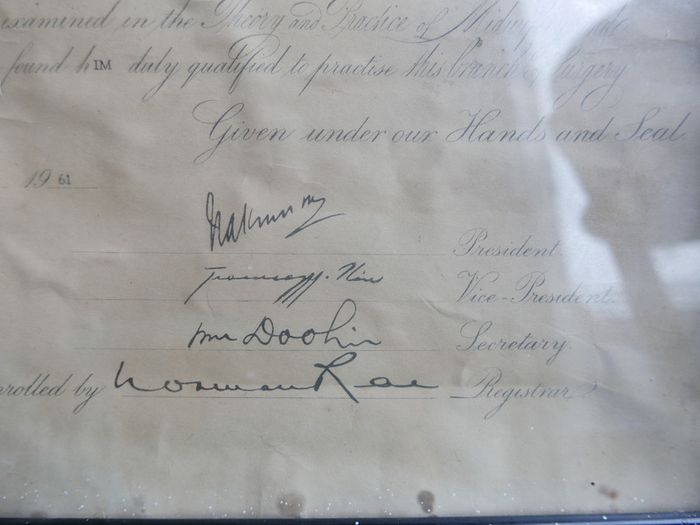 examined in the Theory and Practice of
found hIM duly qualified to practise this branch of Surgery
Given under our Hands and Seal
19 61
President.
Vice-President.
Secretary.
nrolled by Norman Rae Registrar